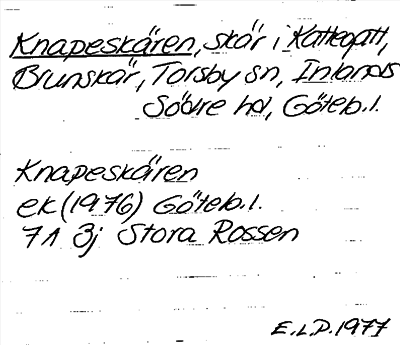 Knapeskären, skär i Kattegatt,
Brunskär, Torsby sn, Inlands
Södre hd, Göteb.l.
Knapeskären
ek (1976) Göteb.l.
7A 3j Stora Rossen
E.L.P. 1977